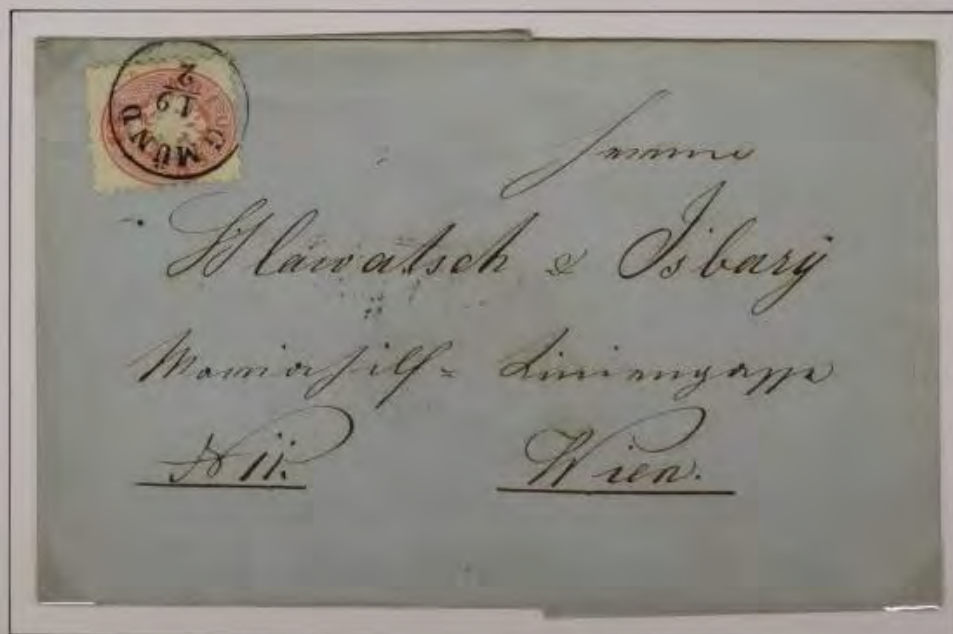 GMÜND
19/2
Herren
Hlawatsch & Isbarÿ
Mariahilf = Liniengasse
N 11.
Wien.